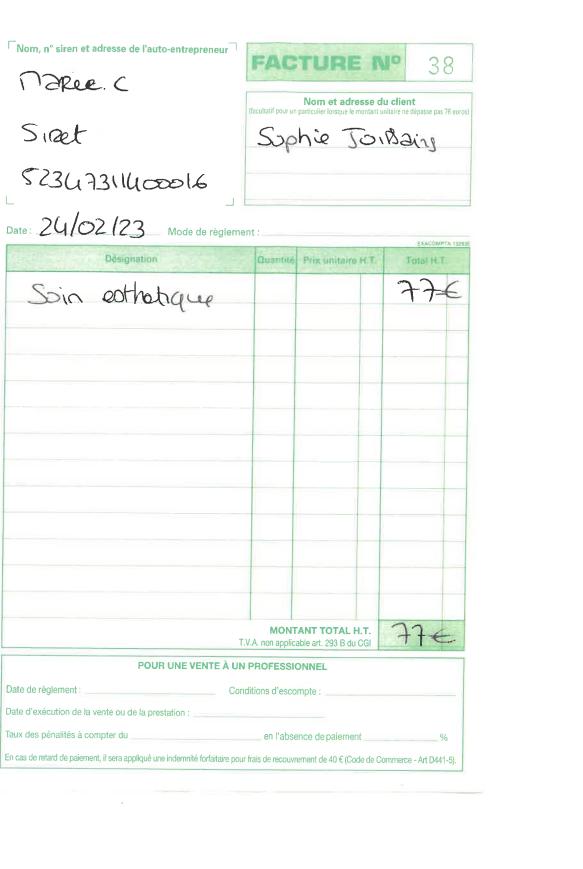 Nom, n° siren et adresse de l'auto-entrepreneur
Marie. C
Siret
52347311400016
FACTURE N° 38
Nom et adresse du client
(facultatif pour un particulier lorsque le montant unitaire ne dépasse pas 76 euros)
Sophie
Date : 24/02/23 Mode de règlement :
EXACOMPTA
Désignation Quantité Prix unitaire H.T. Total H.T.
Soin esthetique 77€
MONTANT TOTAL H.T. 77€
T.V.A. non applicable art. 293 B du CGI
POUR UNE VENTE À UN PROFESSIONNEL
Date de règlement : Conditions d'escompte :
Date d'exécution de la vente ou de la prestation :
Taux des pénalités à compter du en l'absence de paiement %
En cas de retard de paiement, il sera appliqué une indemnité forfaitaire pour frais de recouvrement de 40 € (Code de Commerce - Art D441-5).